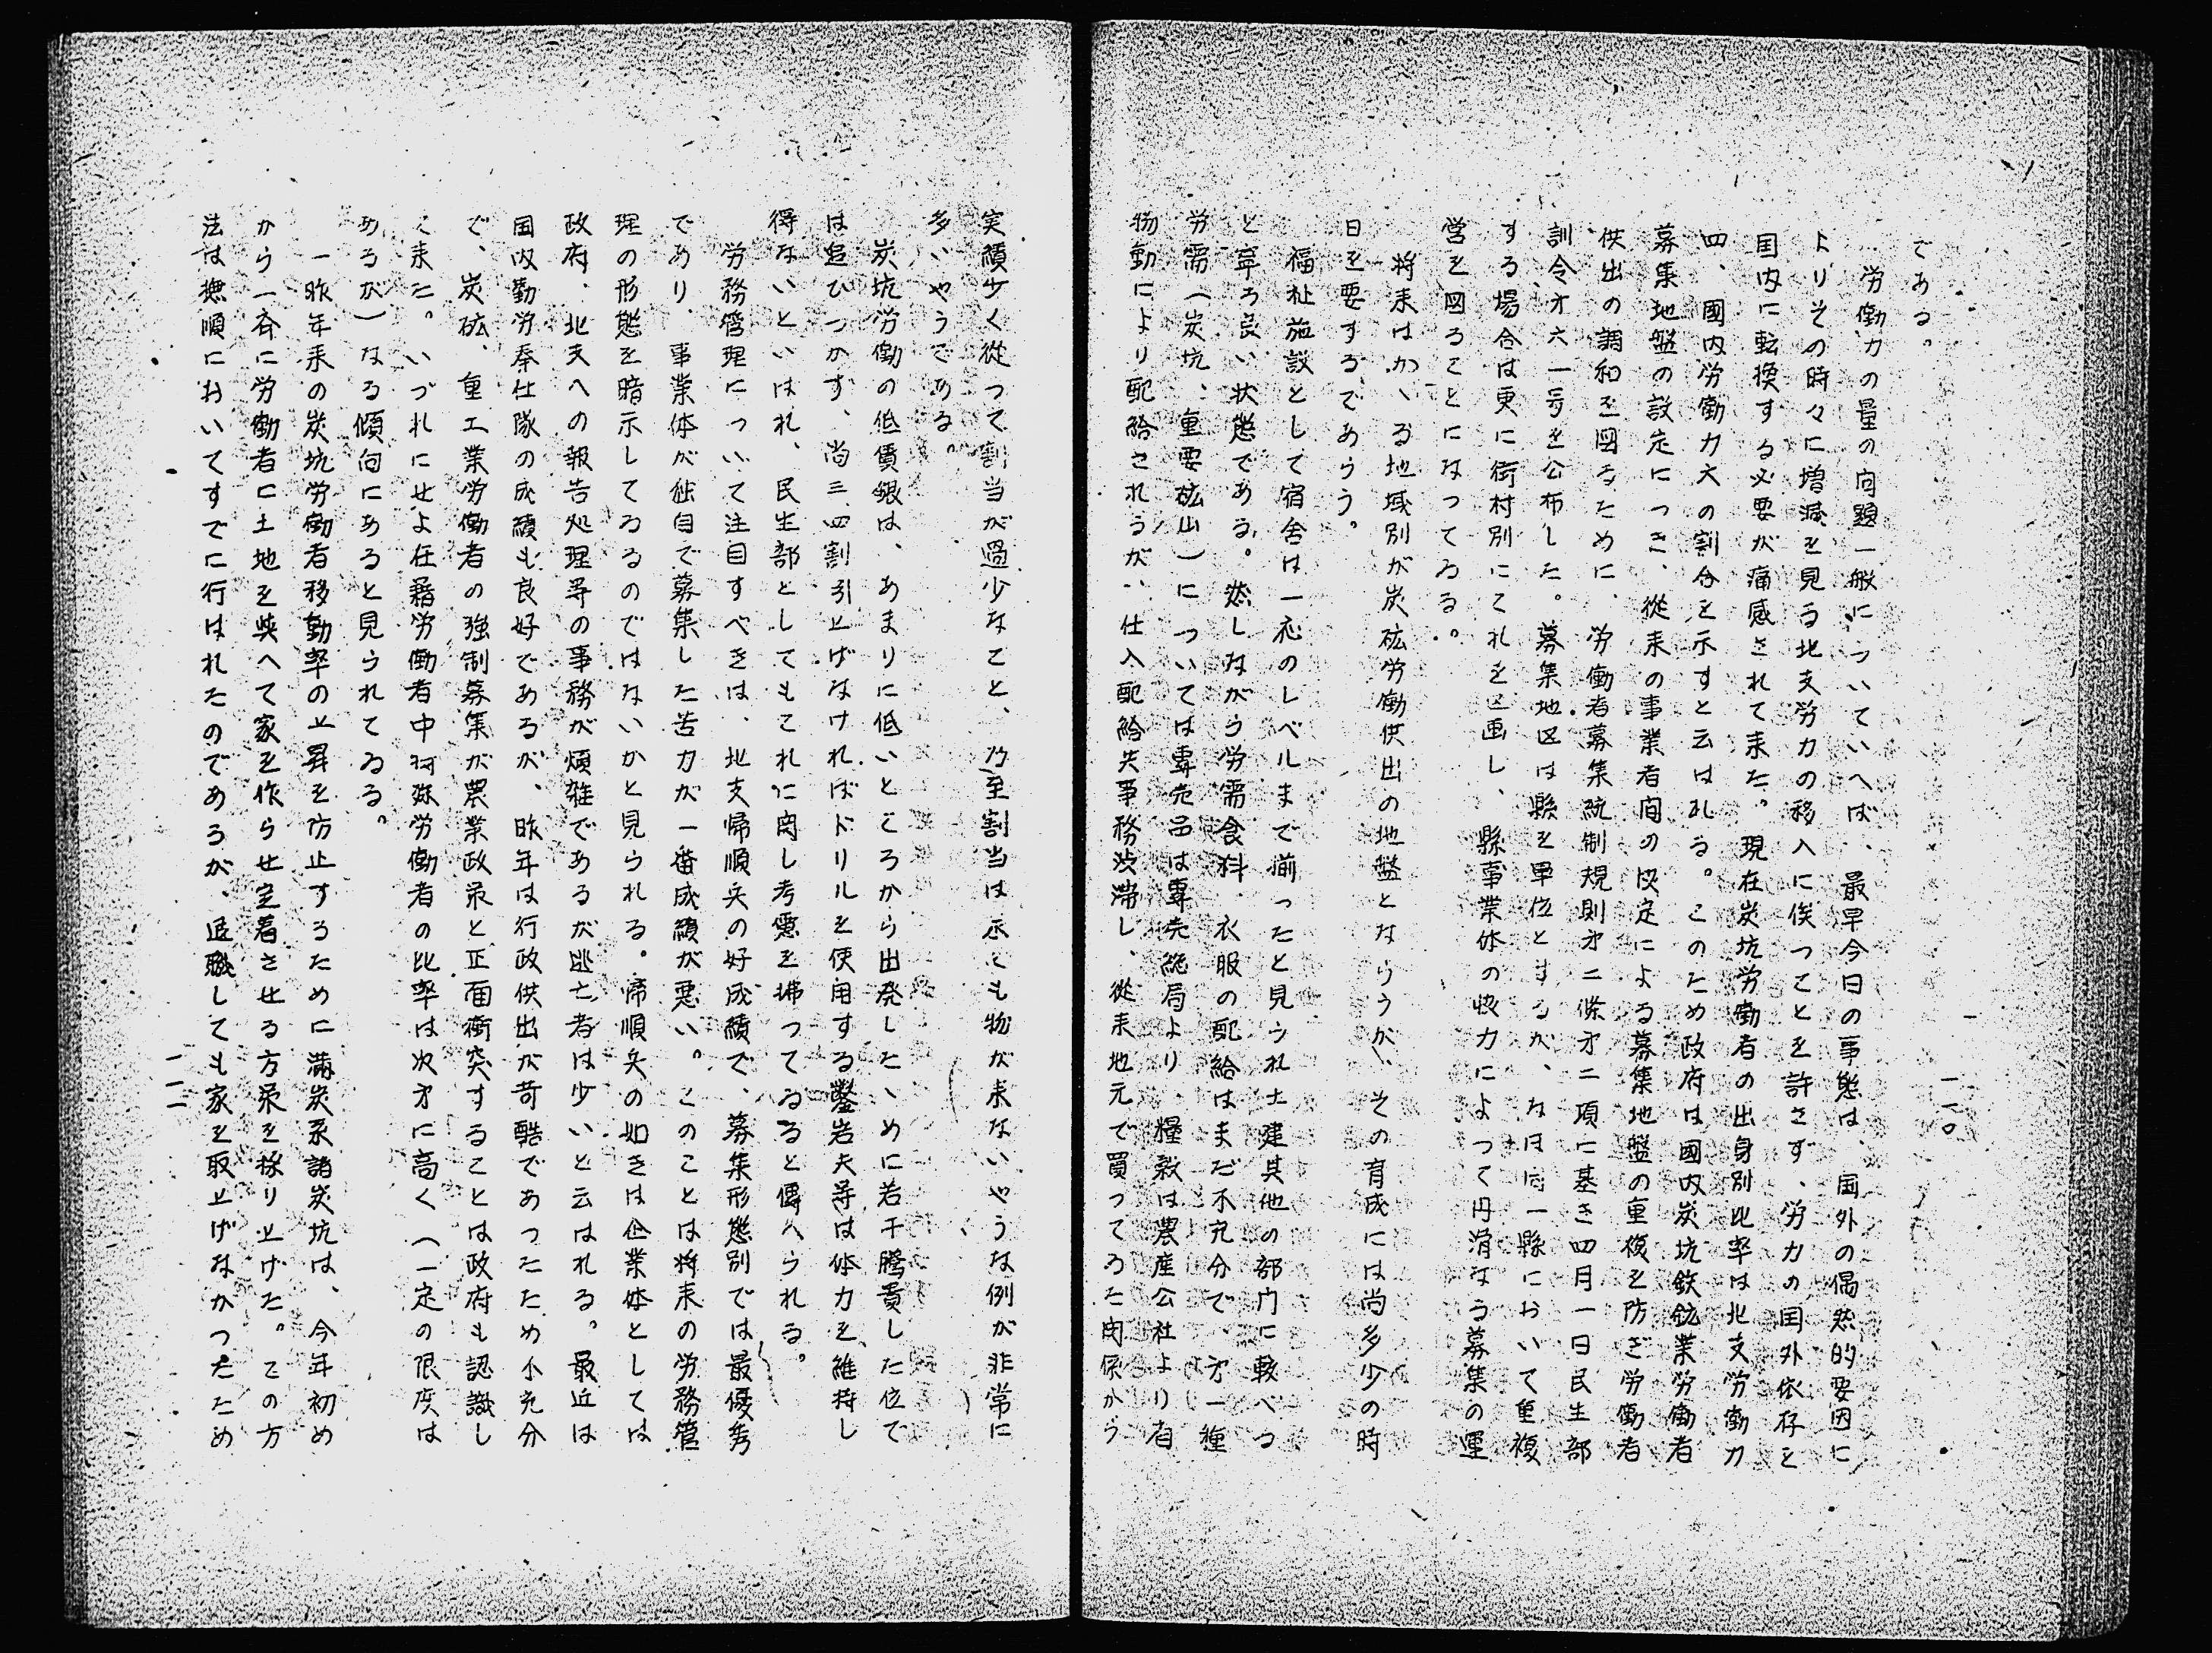 一一〇
である。
労働力の量の问題一般についていへば、最早今日の事態は、国外の偶然的要因に
よりその時々に増減を見る北支労力の移入に俟つことを許さず、労力の国外依存を
国内に転換する必要が痛感されて来た。現在炭坑労働者の出身別比率は北支労働力
四、國内労働力六の割合を示すと云はれる。このため政府は國内炭坑鉄鉱業労働者
募集地盤の設定につき、從来の事業者间の協定による募集地盤の重複を防ぎ労働者
供出の調和を図るために、労働者募集統制規則才二條才二項に基き四月一日民生部
訓令才六一号を公布した。募集地区は縣を單位とするが、なほ同一縣において重複
する場合は更に街村別にこれを区画し、縣事業体の協力によって円滑なる募集の運
営を図ることになってゐる。
将来はかゝる地域別が炭砿労働供出の地盤とならうが、その育成には尚多少の時
日を要するであらう。
福祉施設として宿舎は一応のレベルまで揃ったと見られ土建其他の部门に較べる
と寧ろ良い状態である。然しながら労需食料、衣服の配給はまだ不充分で、才一種
労需（炭坑、重要砿山）については專売品は專売総局より、糧穀は農産公社より夫々
物動により配給されるが、仕入配給共事務渋滞し、從来地元で買ってゐた関係から
実績少く従って割当が過少なこと、乃至割当は示しても物が来ないやうな例が非常に
多いやうである。
炭坑労働の低賃銀は、あまりに低いところから出発したゝめに若干騰貴した位で
は追ひつかず、尚三、四割引上げなければドリルを使用する鑿岩夫等は体力を維持し
得ないといはれ、民生部としてもこれに関し考慮を拂ってゐると傳へられる。
労務管理について注目すべきは、北支帰順兵の好成績で、募集形態別では最優秀
であり、事業体が独自で募集した苦力が一番成績が悪い。このことは将来の労務管
理の形態を暗示してゐるのではないかと見られる。帰順兵の如きは企業体としては
政府、北支への報告処理等の事務が煩雑であるが逃亡者は少いと云はれる。最近は
国内勤労奉仕隊の成績も良好であるが、昨年は行政供出が苛酷であつたため不充分
で、炭砿、重工業労働者の強制募集が農業政策と正面衝突することは政府も認識し
て来た。いづれにせよ在籍労働者中把頭労働者の比率は次才に高く（一定の限度は
あるが）なる傾向にあると見られてゐる。
一昨年来の炭坑労働者移動率の上昇を防止するために満炭系諸炭坑は、今年初め
から一斉に労働者に土地を與へて家を作らせ定着させる方策を採り上げた。この方
法は撫順においてすでに行はれたのであるが、退職しても家を取上げなかったため
一一一